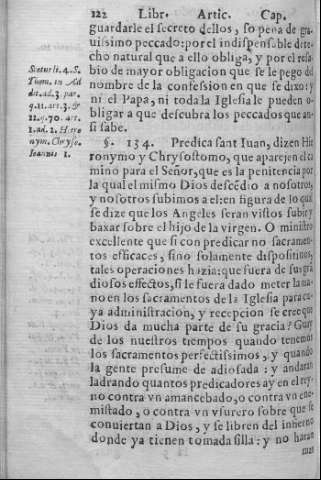 122 Libr. Artic. Cap.
guardarle el secreto dellos, so pena de gra-
uissimo peccado: por el indispensable dere-
cho natural que a ello obliga, y por el resa-
bio de mayor obligacion que se le pego del
nombre de la confession en que se dixo: y
ni el Papa, ni toda la Iglesia le pueden o-
bligar a que descubra los peccados que an-
si sabe.
Scotus li. 4. S.
Thom. in Ad
dit. ad. 3. par.
q. 11. art. 3. &
22. q. 70. art.
1. ad. 2. Hiero
nym. Chryso.
Ioannis 1.
§. 134. Predica sant Iuan, dizen Hie
ronymo y Chrysostomo, que aparejen el ca
mino para el Señor, que es la penitencia por
la qual el mismo Dios descẽdio a nosotros,
y nosotros subimos a el: en figura de lo qual
se dize que los Angeles seran vistos subir y
baxar sobre el hijo de la virgen. O ministro
excellente que si con predicar no sacramen-
tos efficaces, sino solamente dispositiuos,
tales operaciones hazia: que fuera de sus grã
diosos effectos, si le fuera dado meter la ma-
no en los sacramentos de la Iglesia para cu-
ya administracion, y recepcion se cree que
Dios da mucha parte de su gracia? Guay
de los nuestros tiempos quando tenemos
los sacramentos perfectissimos, y quando
la gente presume de adiosada: y andaran
ladrando quantos predicadores ay en el rey-
no contra vn amancebado, o contra vn ene-
mistado, o contra vn vsurero sobre que se
conuiertan a Dios, y se libren del infierno
donde ya tienen tomada silla: y no haran
mas